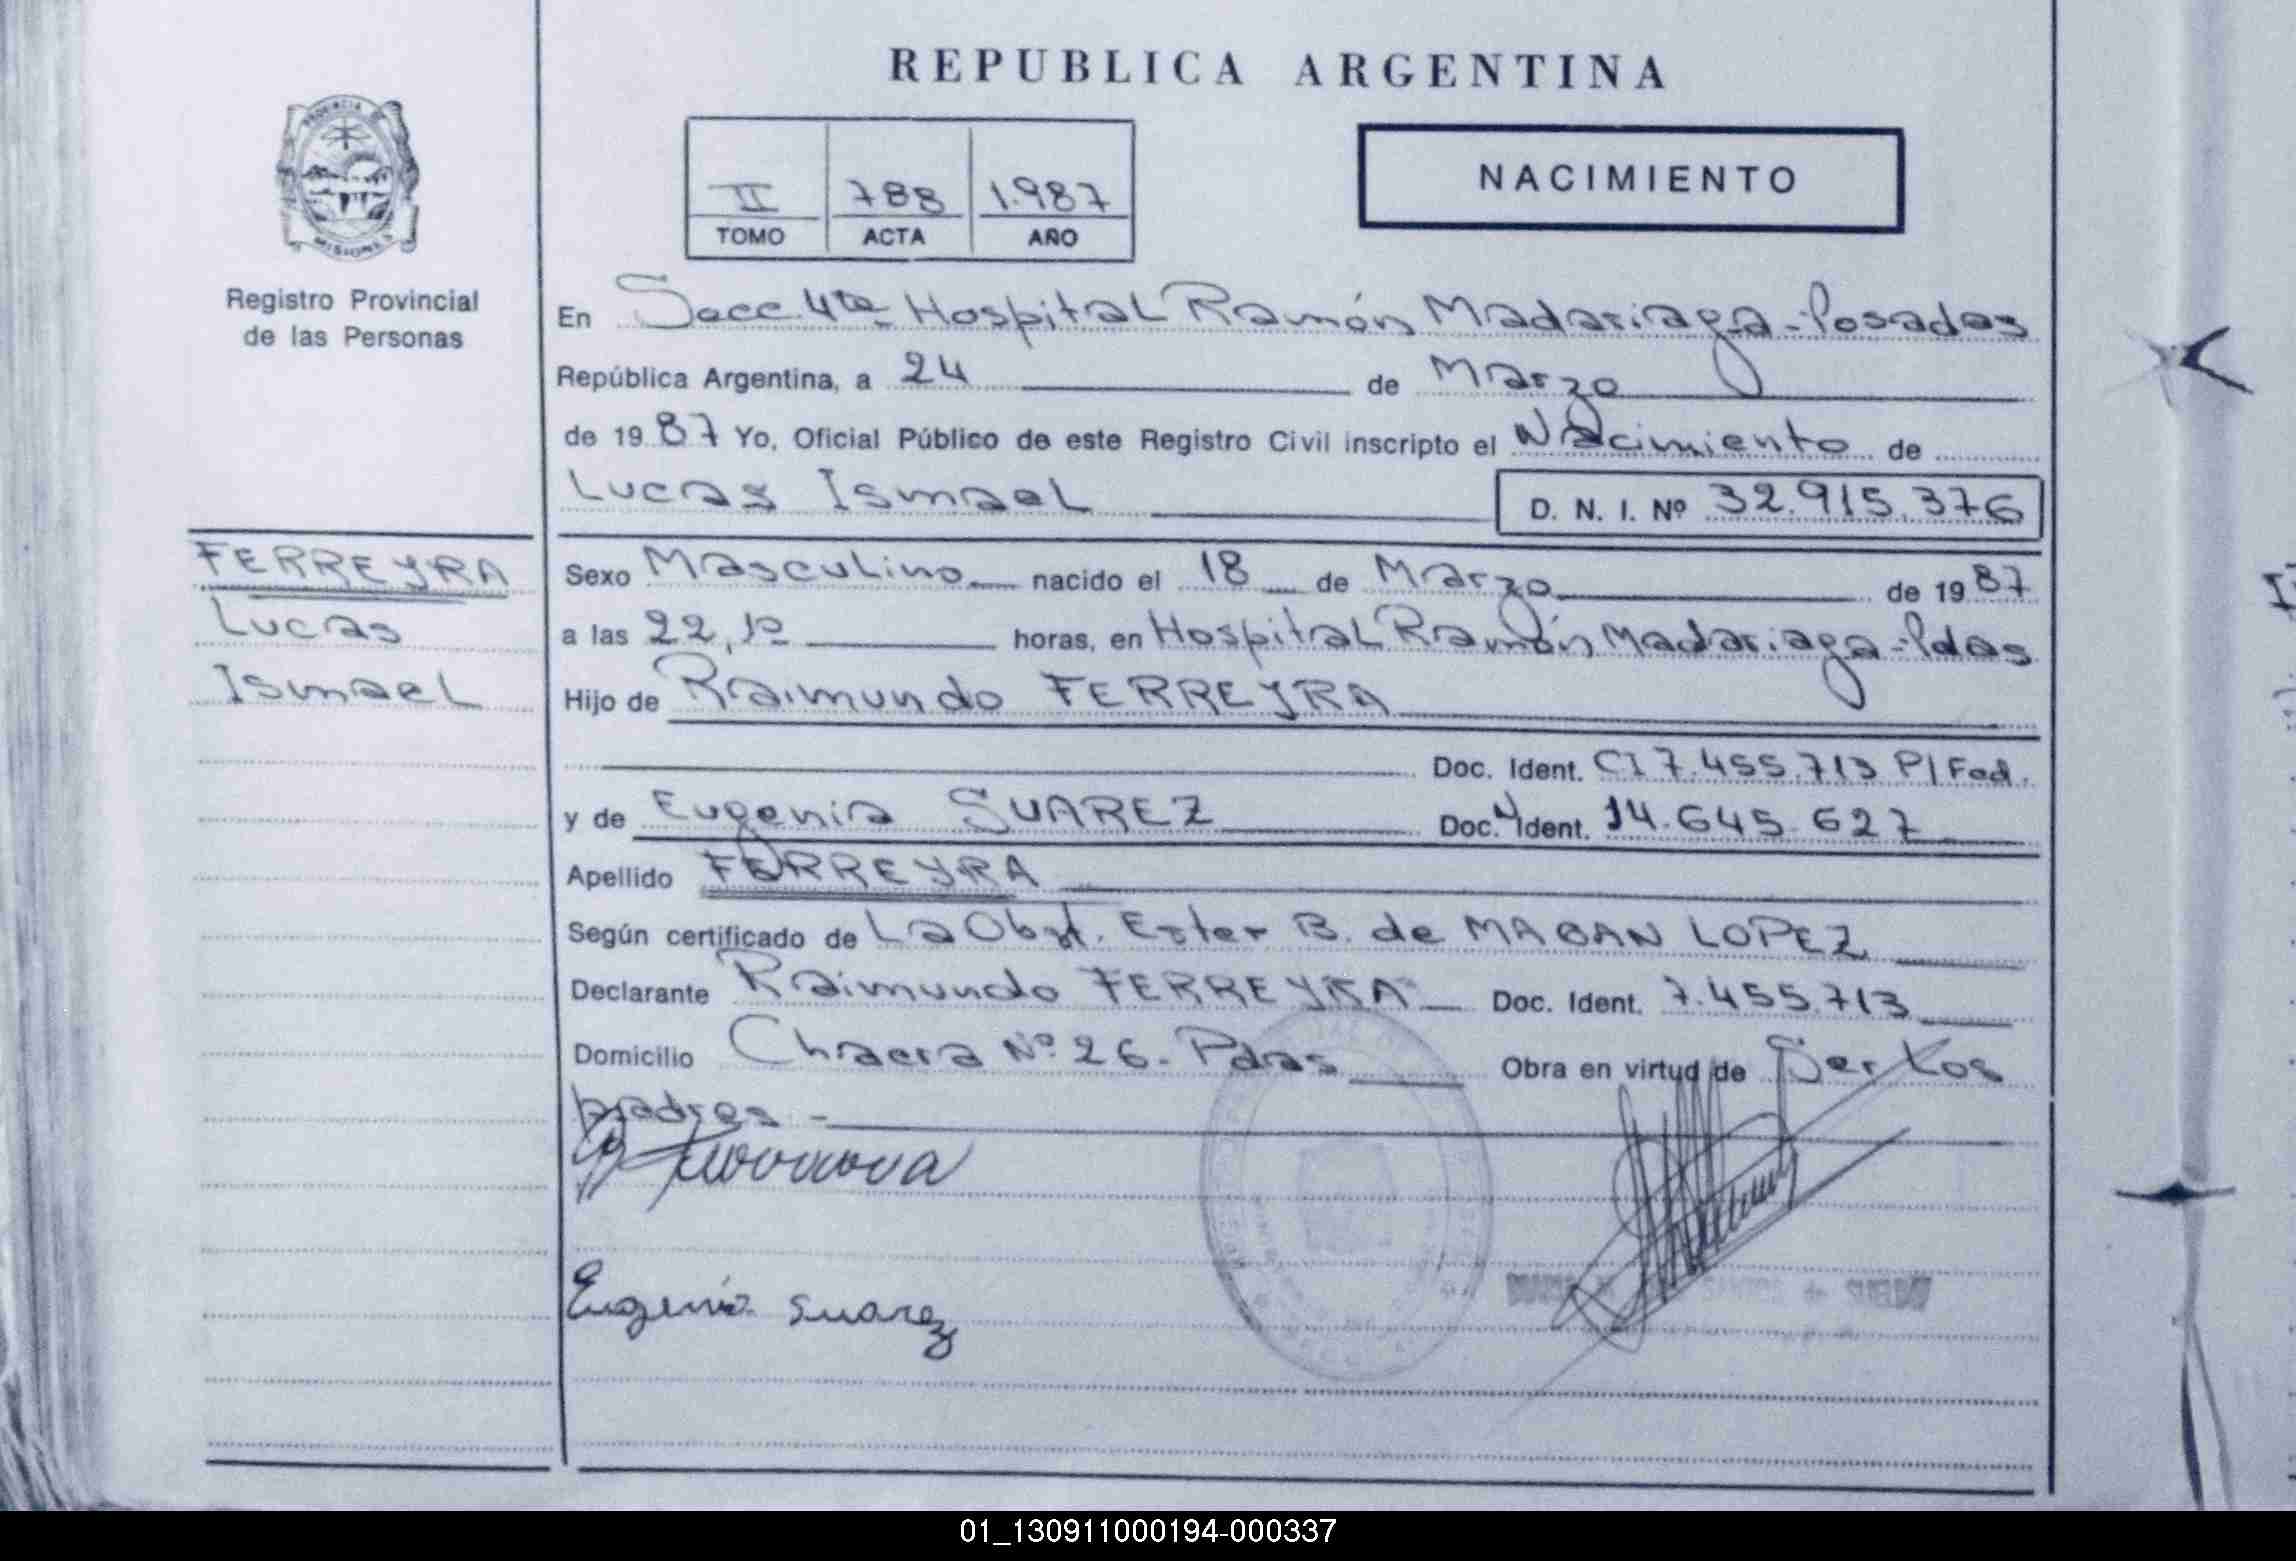 REPUBLICA ARGENTINA
PROVINCIA DE
MISIONES
Registro Provincial
de las Personas
II 788 1.987
TOMO ACTA AÑO
NACIMIENTO
En Secc. 4ta. Hospital Ramón Madariaga - Posadas
República Argentina, a 24 de Marzo
de 1987 Yo, Oficial Público de este Registro Civil inscripto el Nacimiento de
Lucas Ismael D. N. I. Nº 32.915.376
FERREYRA
Lucas
Ismael
Sexo Masculino nacido el 18 de Marzo de 1987
a las 22,10 horas, en Hospital Ramón Madariaga - Pdas
Hijo de Raimundo FERREYRA
Doc. Ident. CI 7.455.713 P/Fed.
y de Eugenia SUAREZ Doc. Ident. 14.645.627
Apellido FERREYRA
Según certificado de La Obst. Ester B. de MABAN LOPEZ
Declarante Raimundo FERREYRA Doc. Ident. 7.455.713
Domicilio Chacra Nº 26 - Pdas Obra en virtud de Ser los
padres -
Eugenia Suarez
01_130911000194-000337